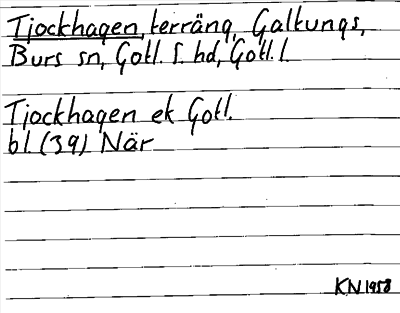 Tjockhagen, terräng, Galtungs,
Burs sn, Gotl. S. hd, Gotl. l.
Tjockhagen ek Gotl.
bl. (39) När
KN 1958